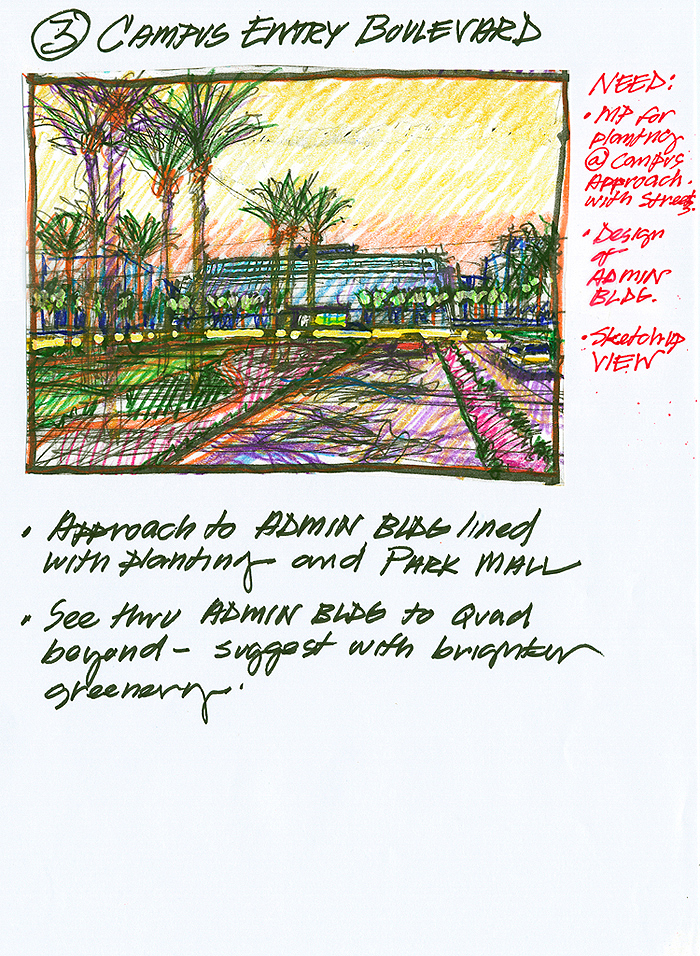 3 CAMPUS ENTRY BOULEVARD
NEED:
• MP for
planting
@ Campus
Approach
with Streets.
• Design
of
ADMIN
BLDG.
• Sketchup
VIEW
• Approach to ADMIN BLDG lined
with planting and PARK MALL
• See thru ADMIN BLDG to Quad
beyond – suggest with brighter
greenery.